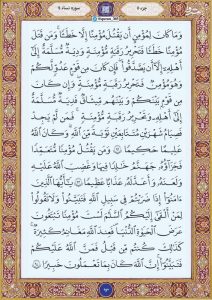 سوره نساء ۴
جزء ۵
وَمَا كَانَ لِمُؤْمِنٍ أَن يَقْتُلَ مُؤْمِنًا إِلَّا خَطَـًٔا وَمَن قَتَلَ
مُؤْمِنًا خَطَـًٔا فَتَحْرِيرُ رَقَبَةٍ مُّؤْمِنَةٍ وَدِيَةٌ مُّسَلَّمَةٌ إِلَىٰٓ
أَهْلِهِۦٓ إِلَّآ أَن يَصَّدَّقُوا۟ فَإِن كَانَ مِن قَوْمٍ عَدُوٍّ لَّكُمْ
وَهُوَ مُؤْمِنٌ فَتَحْرِيرُ رَقَبَةٍ مُّؤْمِنَةٍ وَإِن كَانَ
مِن قَوْمٍ بَيْنَكُمْ وَبَيْنَهُم مِّيثَٰقٌ فَدِيَةٌ مُّسَلَّمَةٌ
إِلَىٰٓ أَهْلِهِۦ وَتَحْرِيرُ رَقَبَةٍ مُّؤْمِنَةٍ فَمَن لَّمْ يَجِدْ
فَصِيَامُ شَهْرَيْنِ مُتَتَابِعَيْنِ تَوْبَةً مِّنَ ٱللَّهِ وَكَانَ ٱللَّهُ
عَلِيمًا حَكِيمًا ٩٢ وَمَن يَقْتُلْ مُؤْمِنًا مُّتَعَمِّدًا
فَجَزَآؤُهُۥ جَهَنَّمُ خَٰلِدًا فِيهَا وَغَضِبَ ٱللَّهُ عَلَيْهِ
وَلَعَنَهُۥ وَأَعَدَّ لَهُۥ عَذَابًا عَظِيمًا ٩٣ يَٰٓأَيُّهَا ٱلَّذِينَ
ءَامَنُوٓا۟ إِذَا ضَرَبْتُمْ فِى سَبِيلِ ٱللَّهِ فَتَبَيَّنُوا۟ وَلَا تَقُولُوا۟
لِمَنْ أَلْقَىٰٓ إِلَيْكُمُ ٱلسَّلَٰمَ لَسْتَ مُؤْمِنًا تَبْتَغُونَ
عَرَضَ ٱلْحَيَوٰةِ ٱلدُّنْيَا فَعِندَ ٱللَّهِ مَغَانِمُ كَثِيرَةٌ
كَذَٰلِكَ كُنتُم مِّن قَبْلُ فَمَنَّ ٱللَّهُ عَلَيْكُمْ
فَتَبَيَّنُوٓا۟ إِنَّ ٱللَّهَ كَانَ بِمَا تَعْمَلُونَ خَبِيرًا ٩٤
۹۳